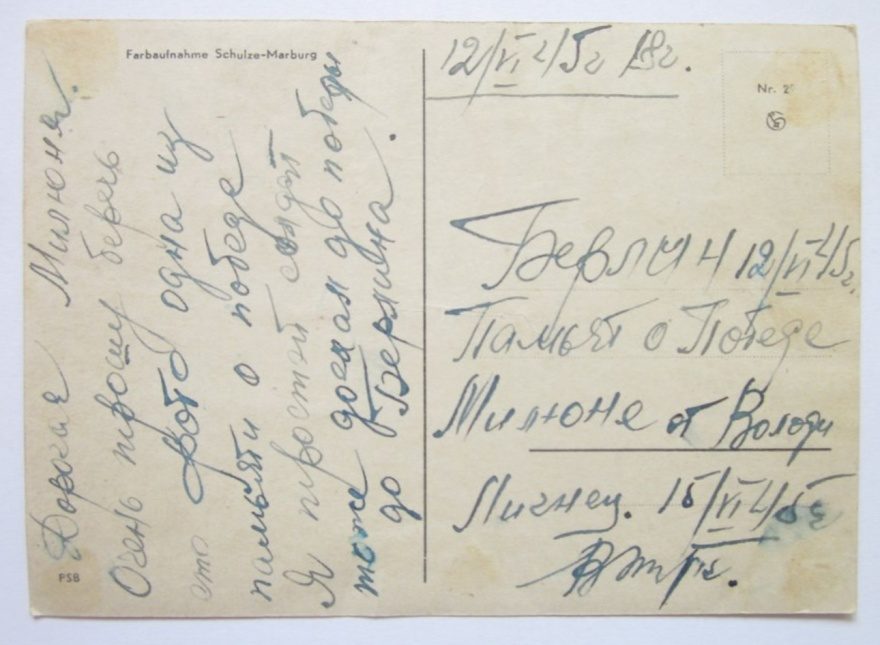 Farbaufnahme Schulze-Marburg
Дорогая Милюня.
Очень прошу беречь
это фото одна из
памьяти о победе
Я простой солдат
тоже дошол до победы
до Берлина.
PSB
12/VI 45г
Nr. 2
Берлин 12/VI 45г.
Памьят о Победе
Милюне от Володи
Лигнец. 15/VI 45г